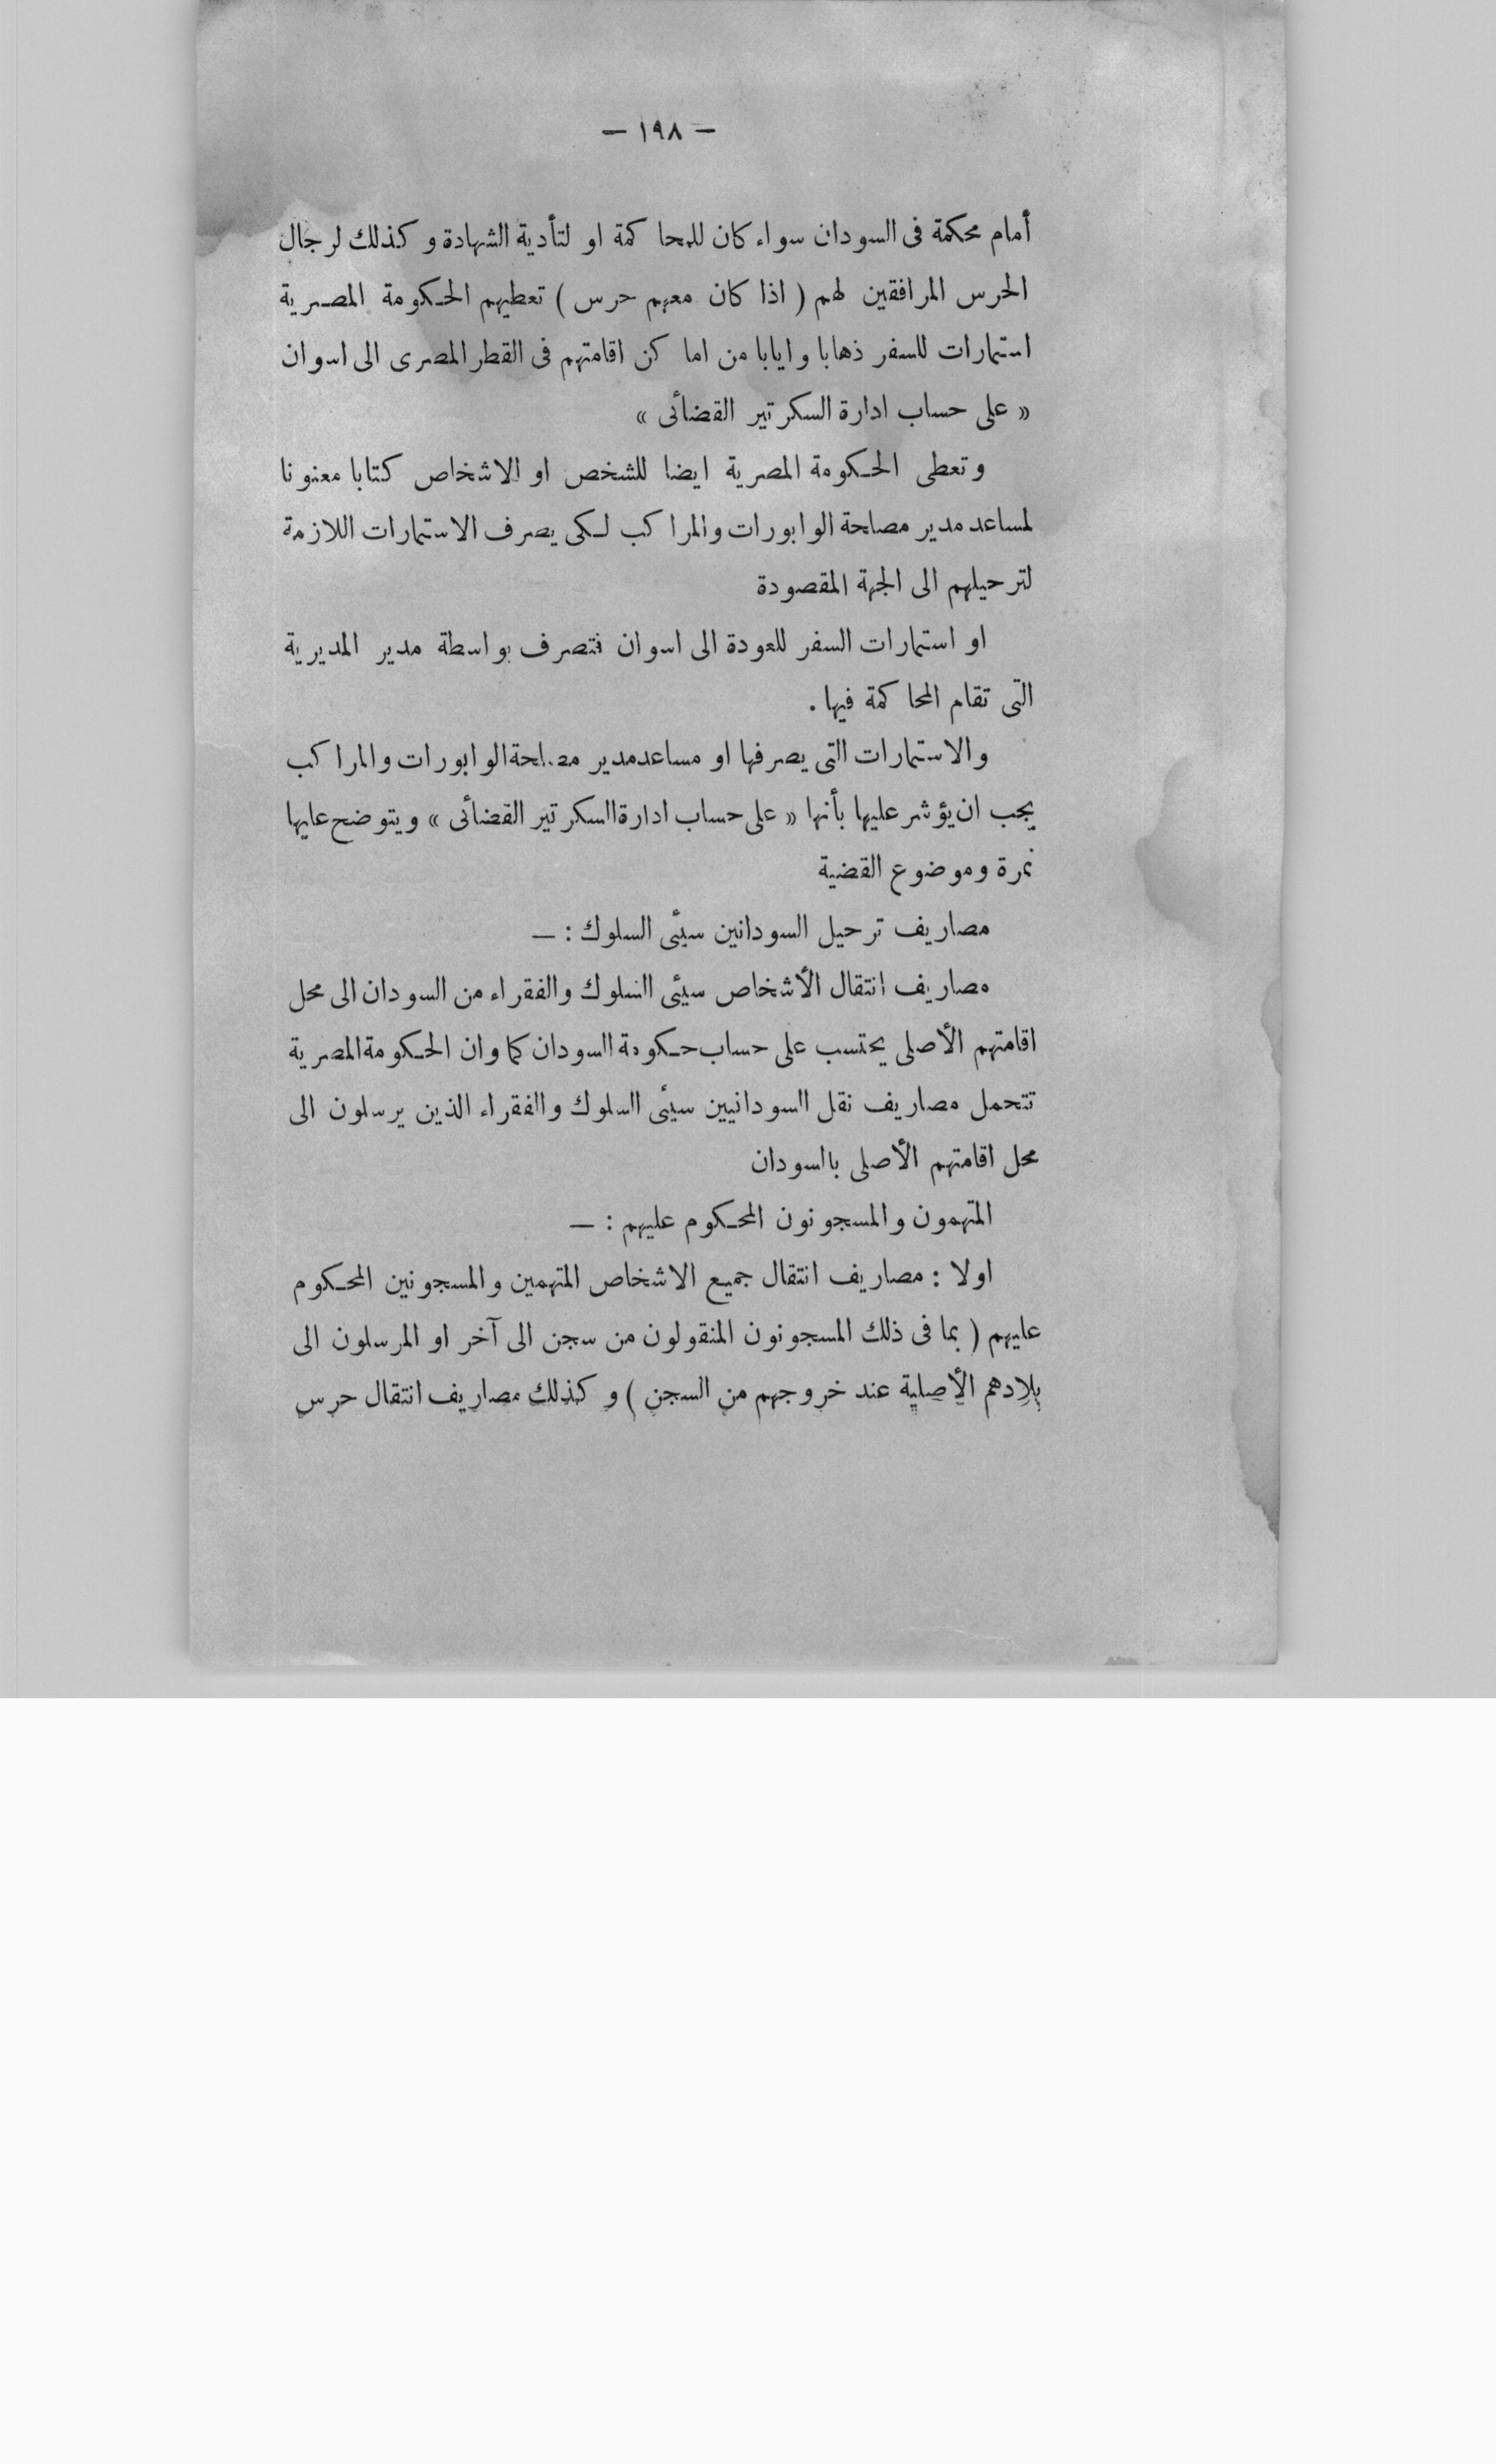 — ١٩٨ —
أمام محكمة فى السودان سواء كان للمحاكمة او لتأدية الشهادة وكذلك لرجال
الحرس المرافقين لهم ( اذا كان معهم حرس ) تعطيهم الحكومة المصرية
استمارات للسفر ذهابا وايابا من اماكن اقامتهم فى القطر المصرى الى اسوان
« على حساب ادارة السكرتير القضائى »
وتعطى الحكومة المصرية ايضا للشخص او الاشخاص كتابا معنونا
لمساعد مدير مصلحة الوابورات والمراكب لكى يصرف الاستمارات اللازمة
لترحيلهم الى الجهة المقصودة
او استمارات السفر للعودة الى اسوان فتصرف بواسطة مدير المديرية
التى تقام المحاكمة فيها .
والاستمارات التى يصرفها او مساعد مدير مصلحة الوابورات والمراكب
يجب ان يؤشر عليها بأنها « على حساب ادارة السكرتير القضائى » ويتوضح عليها
نمرة وموضوع القضية
مصاريف ترحيل السودانين سيئى السلوك : —
مصاريف انتقال الأشخاص سيئى السلوك والفقراء من السودان الى محل
اقامتهم الأصلى يحتسب على حساب حكومة السودان كما وان الحكومة المصرية
تتحمل مصاريف نقل السودانيين سيئى السلوك والفقراء الذين يرسلون الى
محل اقامتهم الأصلى بالسودان
المتهمون والمسجونون المحكوم عليهم : —
اولا : مصاريف انتقال جميع الاشخاص المتهمين والمسجونين المحكوم
عليهم ( بما فى ذلك المسجونون المنقولون من سجن الى آخر او المرسلون الى
بلادهم الأصلية عند خروجهم من السجن ) وكذلك مصاريف انتقال حرس